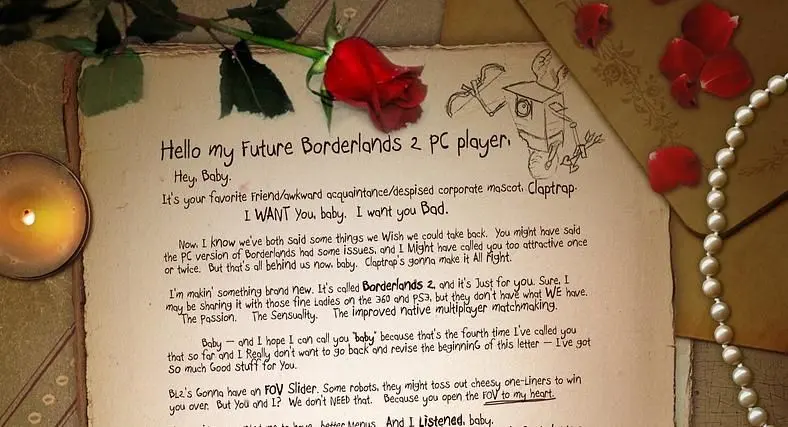 Hello my Future Borderlands 2 PC player,
Hey, Baby.
It's your favorite Friend/awkward acquaintance/despised corporate mascot, Claptrap.
I WANT You, baby. I want you Bad.
Now, I know we've both said some things we Wish we could take back. You might have said
the PC version of Borderlands had some issues, and I Might have called you too attractive once
or twice. But that's all behind us now, baby. Claptrap's gonna make it All Right.
I'm makin' something brand new. It's called Borderlands 2, and it's Just for you. Sure, I
may be sharing it with those fine Ladies on the 360 and PS3, but they don't have what WE have.
The Passion. The Sensuality. The improved native multiplayer matchmaking.
Baby — and I hope I can call you "baby" because that's the fourth time I've called you
that so far and I Really don't want to go back and revise the beginninG of this letter — I've got
so much Good stuff for You.
BL2's Gonna have an FOV Slider. Some robots, they might toss out cheesy one-Liners to win
you over. But YoU and I? We don't NEED that. Because you open the FOV to my heart.
me to have better Menus. And I Listened, baby.